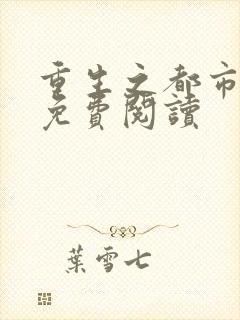 重生之都市
免費閱讀
葉雪七